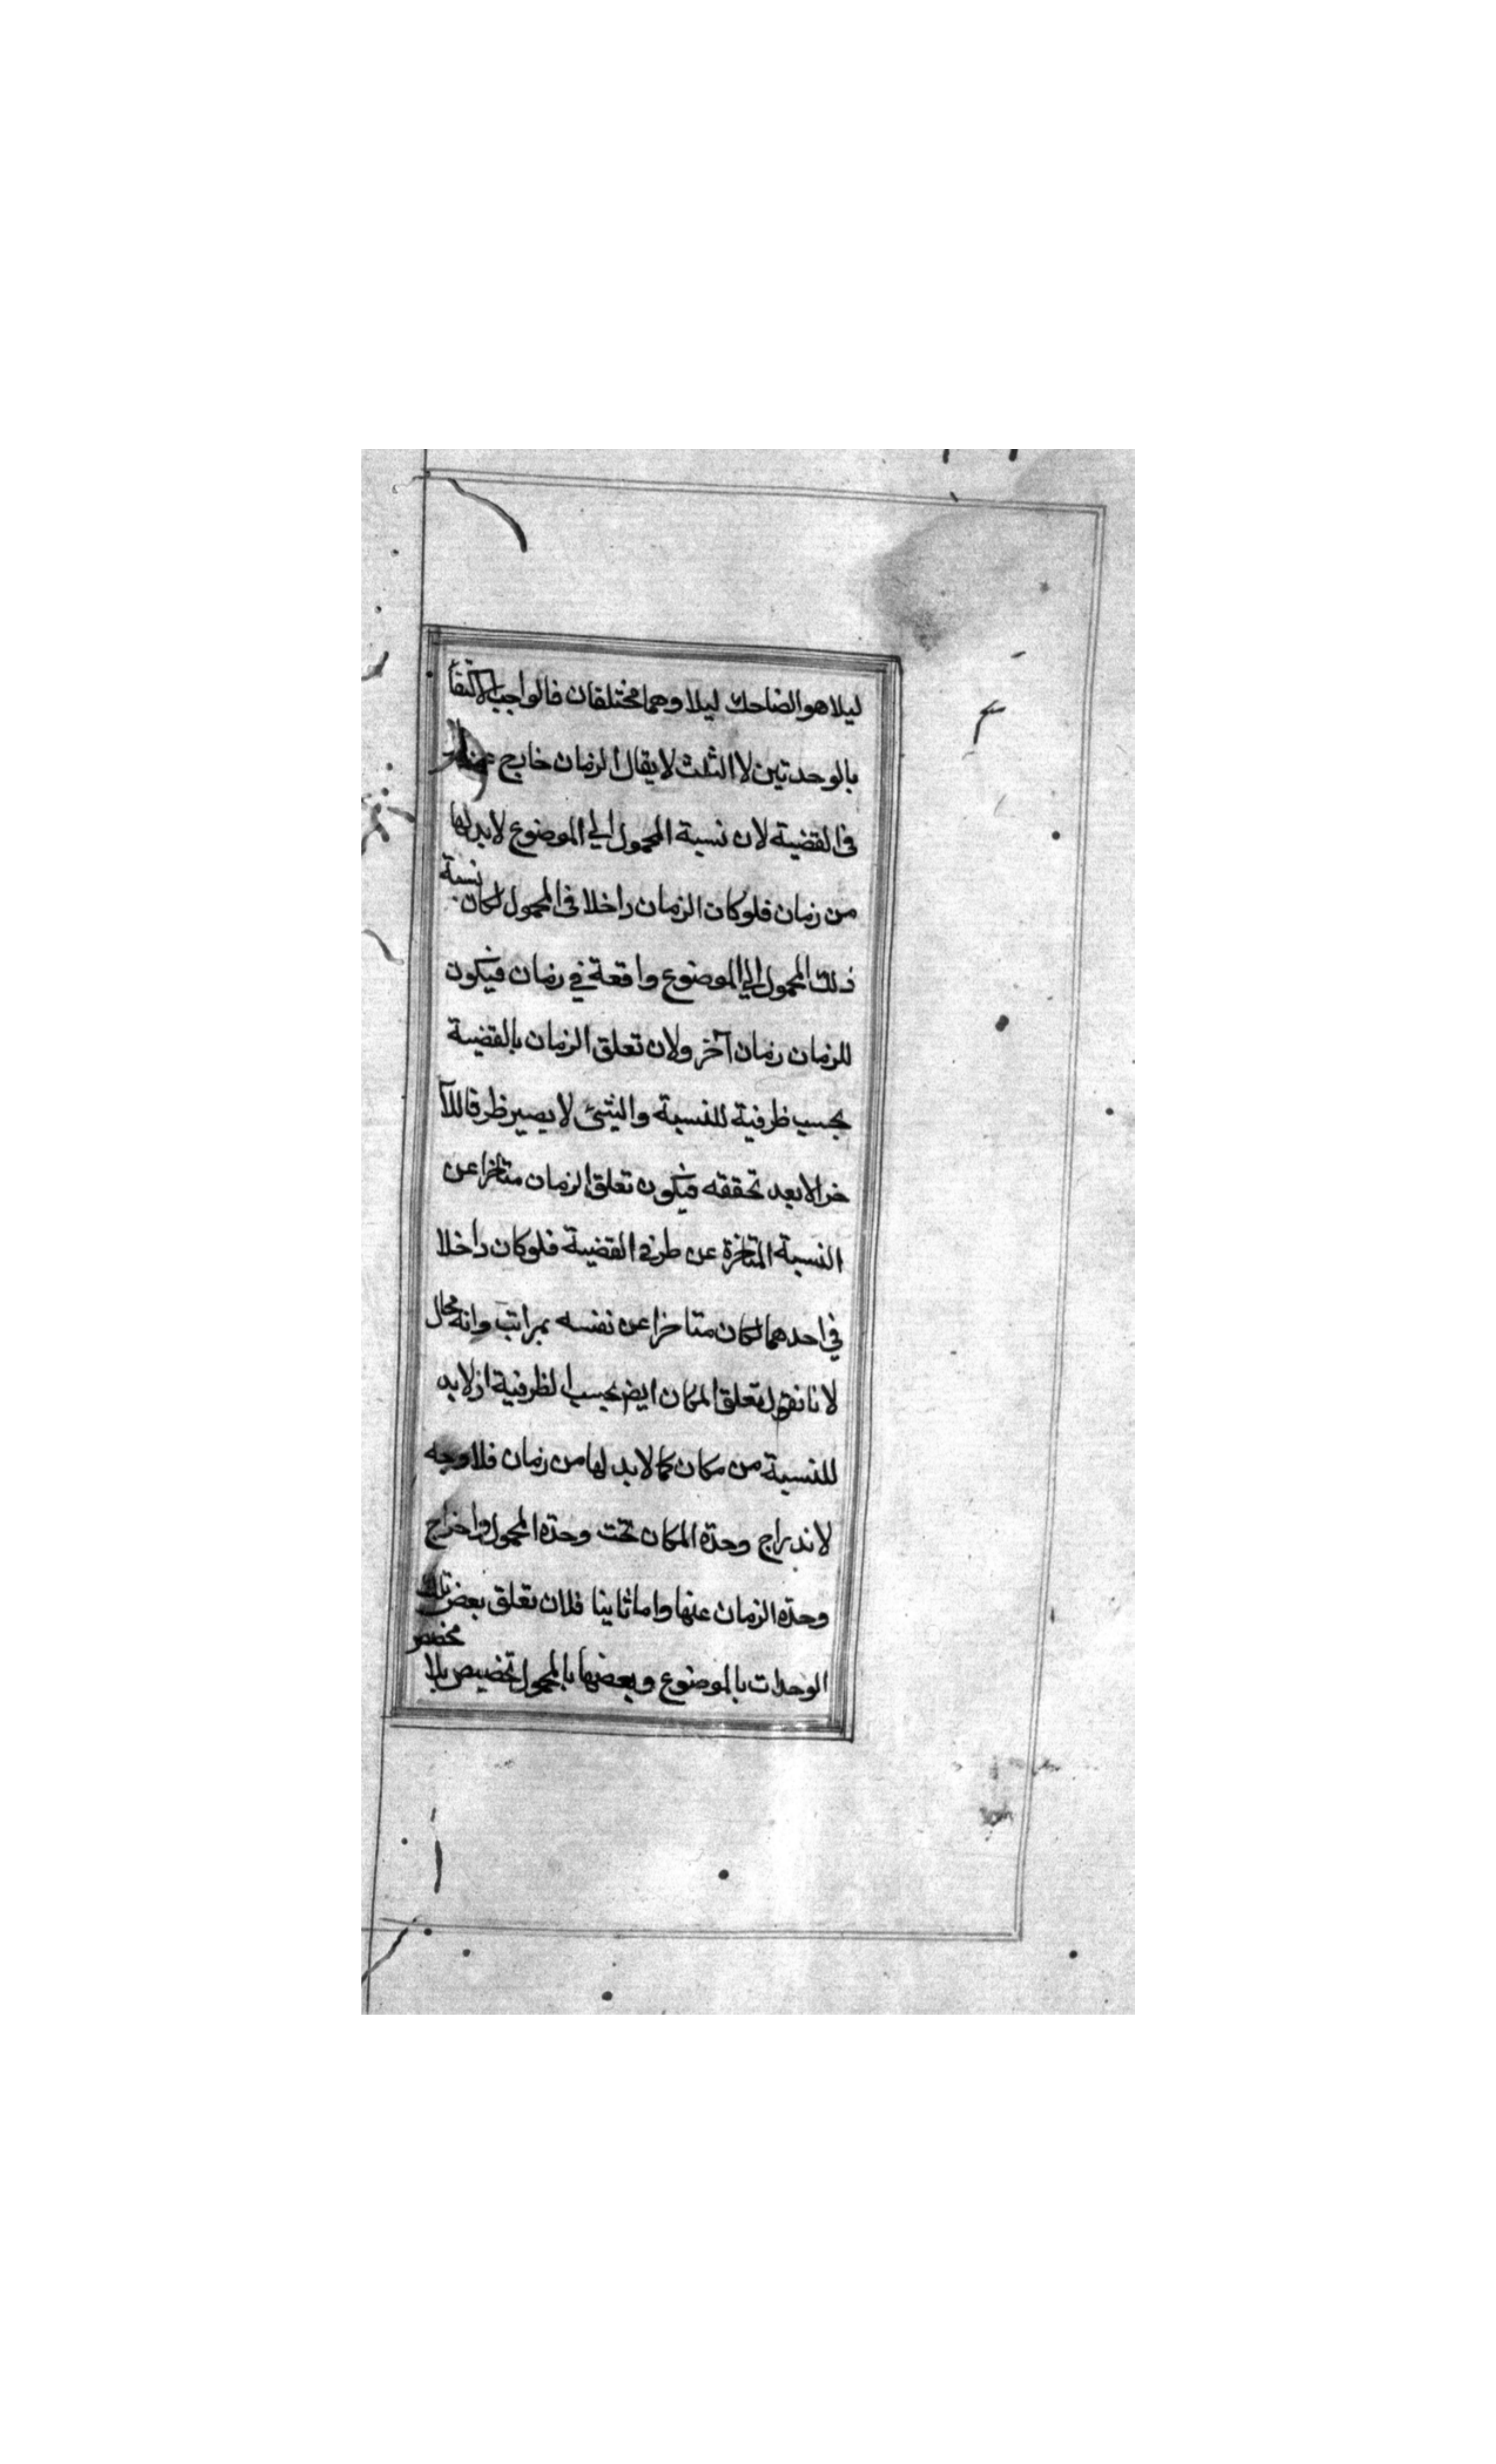 ليلا هو الضاحك ليلا وهما مختلفان فالواجب الاكتفا
بالوحدتين لا الثلث لا يقال الزمان خارج عن
في القضية لان نسبة المحمول الي الموضوع لا بد لها
من زمان فلو كان الزمان داخلا في المحمول لكان نسبة
ذلك المحمول الي الموضوع واقعة في زمان فيكون
للزمان زمان آخر ولان تعلق الزمان بالقضية
بحسب ظرفية للنسبة والشئ لا يصير ظرفا للآ
خر الا بعد تحققه فيكون تعلق الزمان متاخرا عن
النسبة المتاخرة عن طرفي القضية فلو كان داخلا
في احدهما لكان متاخرا عن نفسه بمراتب وانه محال
لانا نقول تعلق المكان ايض بحسب الظرفية اذ لا بد
للنسبة من مكان كما لا بد لها من زمان فلا وجه
لاندراج وحدة المكان تحت وحدة المحمول واخراج
وحدة الزمان عنها واما ثانيا فلان تعلق بعض تلك
الوحدات بالموضوع وبعضها بالمحمول تخصيص بلا مخصص